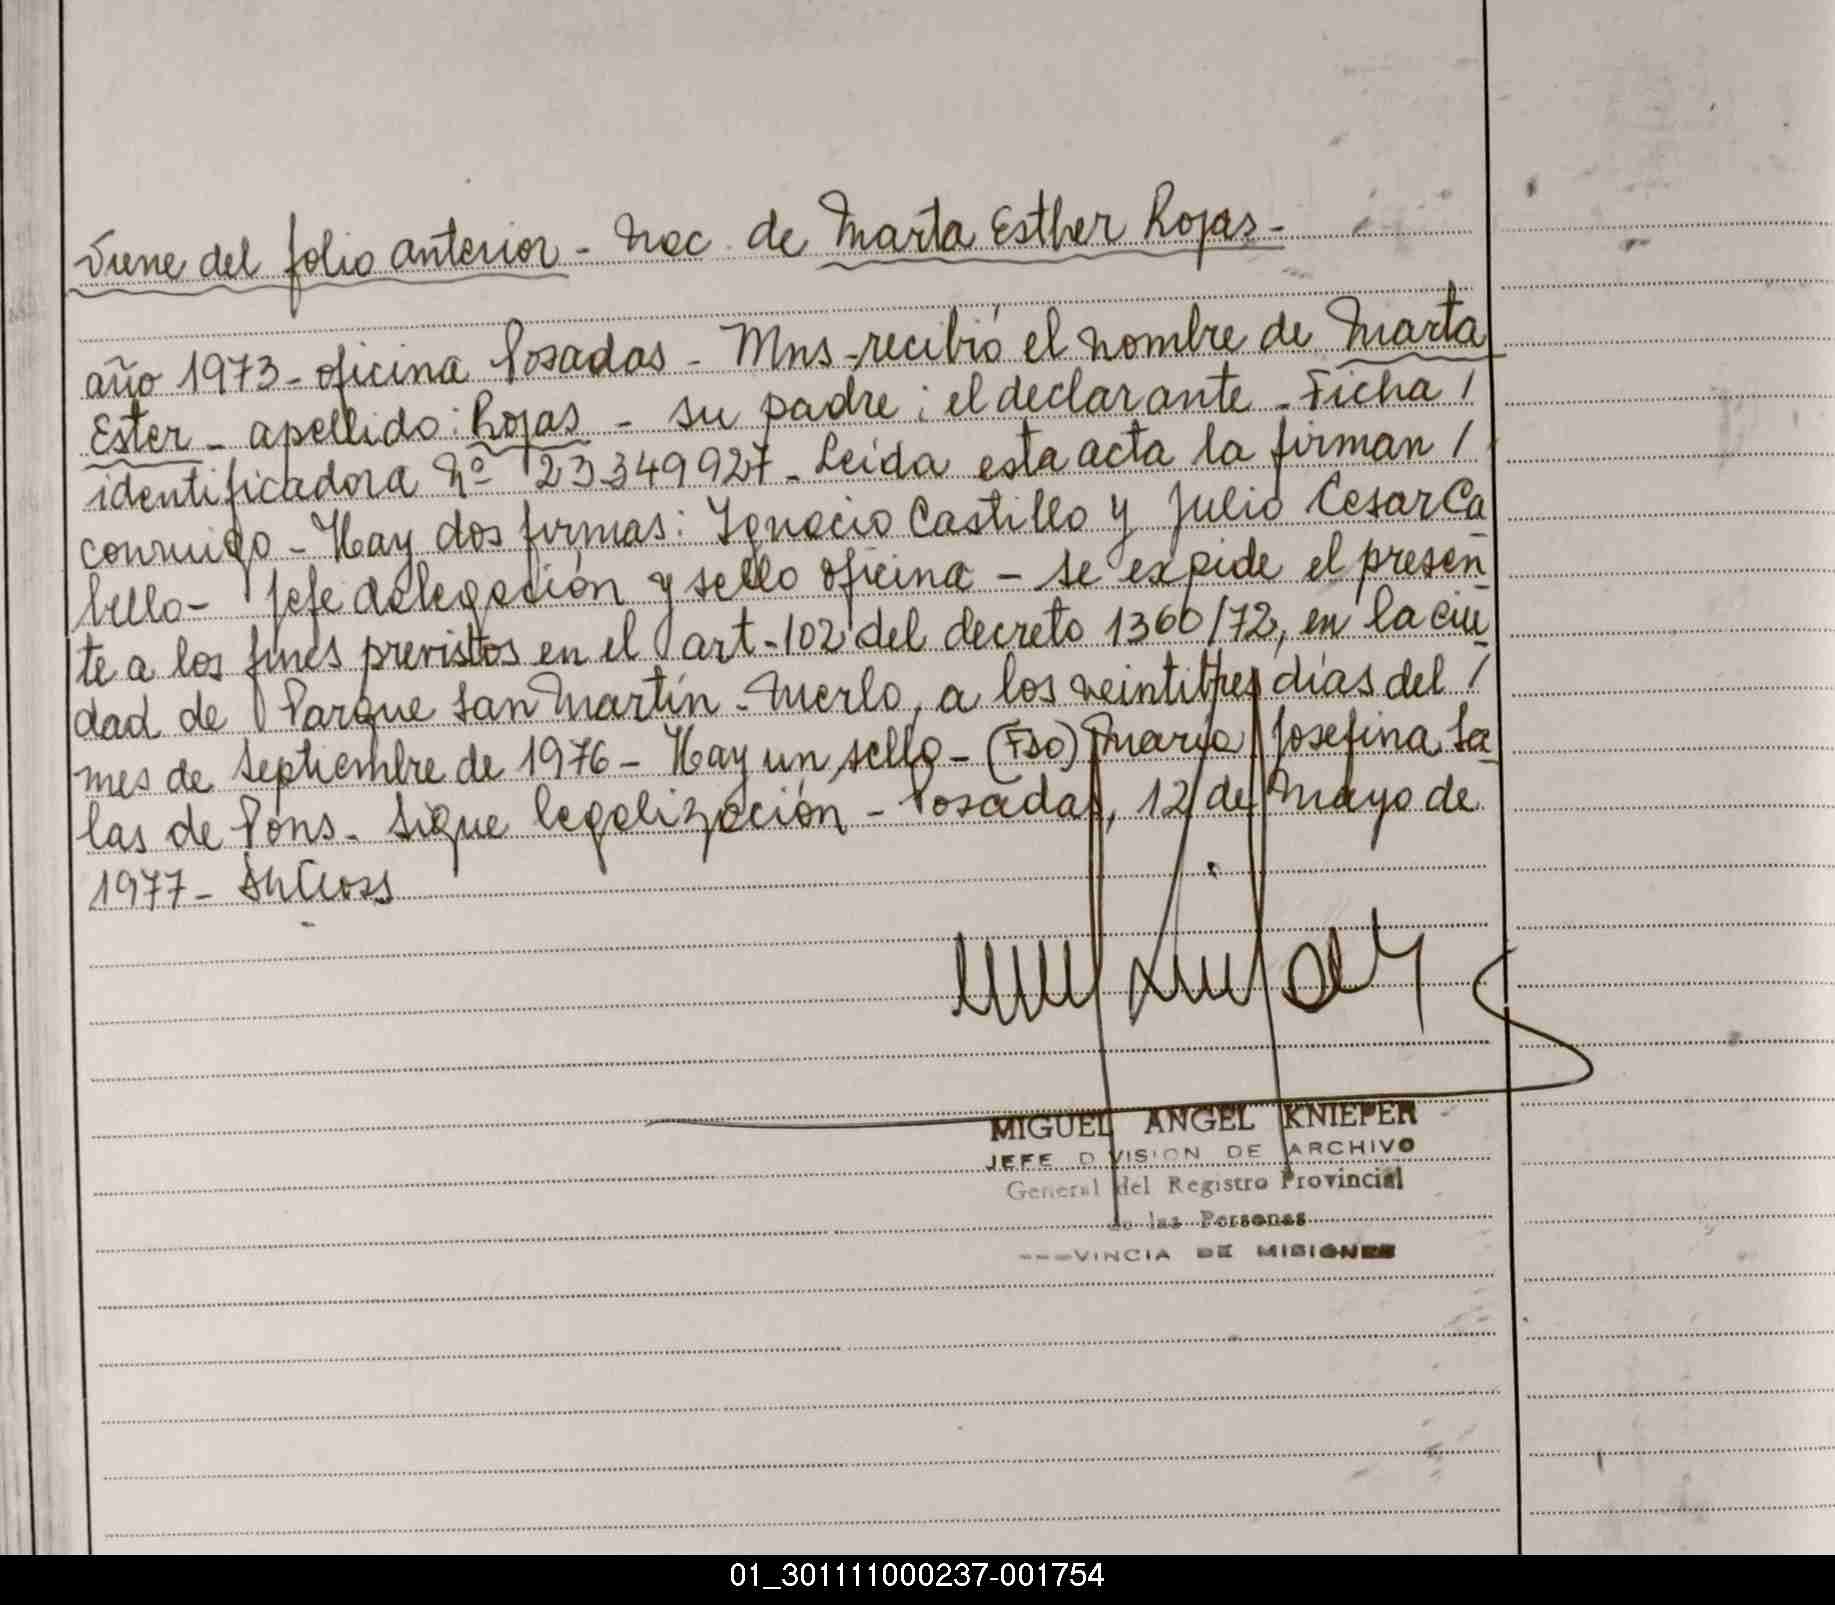 Viene del folio anterior - Nac. de Marta Esther Rojas -
año 1973 - oficina Posadas - Mns - recibió el nombre de Marta
Ester - apellido: Rojas - su padre: el declarante - Ficha /
identificadora Nº 23349927 - Leída esta acta la firman /
conmigo - Hay dos firmas: Ignacio Castillo y Julio Cesar Ca
bello - Jefe delegación y sello oficina - se expide el presen
te a los fines previstos en el art-102 del decreto 1360/72, en la ciu
dad de Parque San Martín - Merlo, a los veintitres días del /
mes de Septiembre de 1976 - Hay un sello - (Fdo) Maria Josefina Sa
las de Pons - Sigue legalización - Posadas, 12 de Mayo de
1977 -
MIGUEL ANGEL KNIEPER
JEFE D VISION DE ARCHIVO
General del Registro Provincial
de las Personas
VINCIA DE MISIONES
01_301111000237-001754